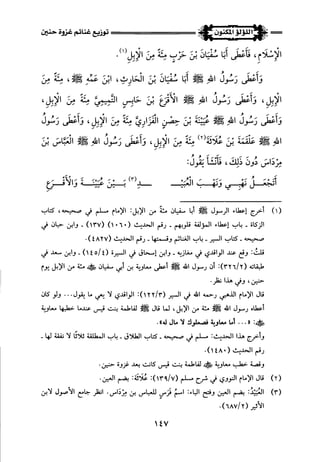 اللؤلؤ المكنون
توزيع غنائم غزوة حنين
الإِسْلَامِ، فَأَعْطَى أَبَا سُفْيَانَ بْنَ حَرْبٍ مِئَةً مِنَ الْإِبِلِ(١).
وَأَعْطَى رَسُولُ اللهِ ﷺ أَبَا سُفْيَانَ بْنَ الْحَارِثِ، ابْنَ عَمِّهِ ﷺ، مِئَةً مِنَ
الْإِبِلِ، وَأَعْطَى رَسُولُ اللهِ ﷺ الْأَقْرَعَ بْنَ حَابِسٍ التَّمِيمِيَّ مِئَةً مِنَ الْإِبِلِ،
وَأَعْطَى رَسُولُ اللهِ ﷺ عُيَيْنَةَ بْنَ حِصْنٍ الْفَزَارِيَّ مِئَةً مِنَ الْإِبِلِ، وَأَعْطَى رَسُولُ
اللهِ ﷺ عَلْقَمَةَ بْنَ عُلَاثَةَ(٢) مِئَةً مِنَ الْإِبِلِ، وَأَعْطَى رَسُولُ اللهِ ﷺ الْعَبَّاسَ بْنَ
مِرْدَاسٍ دُونَ ذَلِكَ، فَأَنْشَأَ يَقُولُ:
أَتَجْعَلُ نَهْبِي وَنَهْبَ الْعُبَيْـ ـدِ(٣) بَيْنَ عُيَيْنَةَ وَالْأَقْرَعِ
(١) أخرج إعطاء الرسول ﷺ أبا سفيان مئة من الإبل: الإمام مسلم في صحيحه، كتاب
الزكاة ـ باب إعطاء المؤلفة قلوبهم ـ رقم الحديث (١٠٦٠) (١٣٧) ـ وابن حبان في
صحيحه ـ كتاب السير ـ باب الغنائم وقسمتها ـ رقم الحديث (٤٨٢٧).
قلتُ: وقع عند الواقدي في مغازيه ـ وابن إسحاق في السيرة (١٤٥/٤) ـ وابن سعد في
طبقاته (٣٢٦/٢): أن رسول الله ﷺ أعطى معاوية بن أبي سفيان ﷺ مئة من الإبل يوم
حنين، وفي هذا نظر.
قال الإمام الذهبي رحمه الله في السير (١٢٢/٣): الواقدي لا يعي ما يقول... ولو كان
أعطاه رسول الله ﷺ مئة من الإبل، لما قال ﷺ لفاطمة بنت قيس عندما خطبها معاوية
ﷺ: «... أما معاوية فصعلوك لا مال له».
وأخرج هذا الحديث: مسلم في صحيحه ـ كتاب الطلاق ـ باب المطلقة ثلاثًا لا نفقة لها ـ
رقم الحديث (١٤٨٠).
وقصة خطب معاوية ﷺ لفاطمة بنت قيس كانت بعد غزوة حنين.
(٢) قال الإمام النووي في شرح مسلم (١٣٩/٧): عُلَاثَة: بضم العين.
(٣) العُبَيْدُ: بضم العين وفتح الباء: اسمُ فَرَسٍ للعباس بن مِرْدَاس. انظر جامع الأصول لابن
الأثير (٦٨٧/٢).
١٤٧